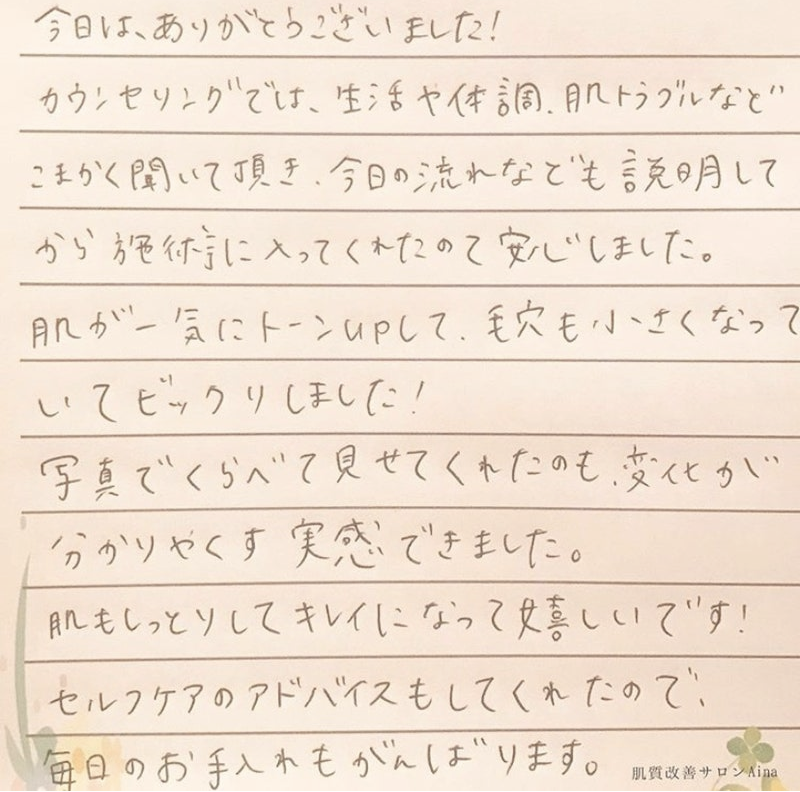 今日は、ありがとうございました!
カウンセリングでは、生活や体調、肌トラブルなど
こまかく聞いて頂き、今日の流れなども説明して
から施術に入ってくれたので安心しました。
肌が一気にトーンupして、毛穴も小さくなって
いてビックリしました!
写真でくらべて見せてくれたのも、変化が
分かりやくす実感できました。
肌もしっとりしてキレイになって嬉しいです!
セルフケアのアドバイスもしてくれたので、
毎日のお手入れもがんばります。
肌質改善サロンAina